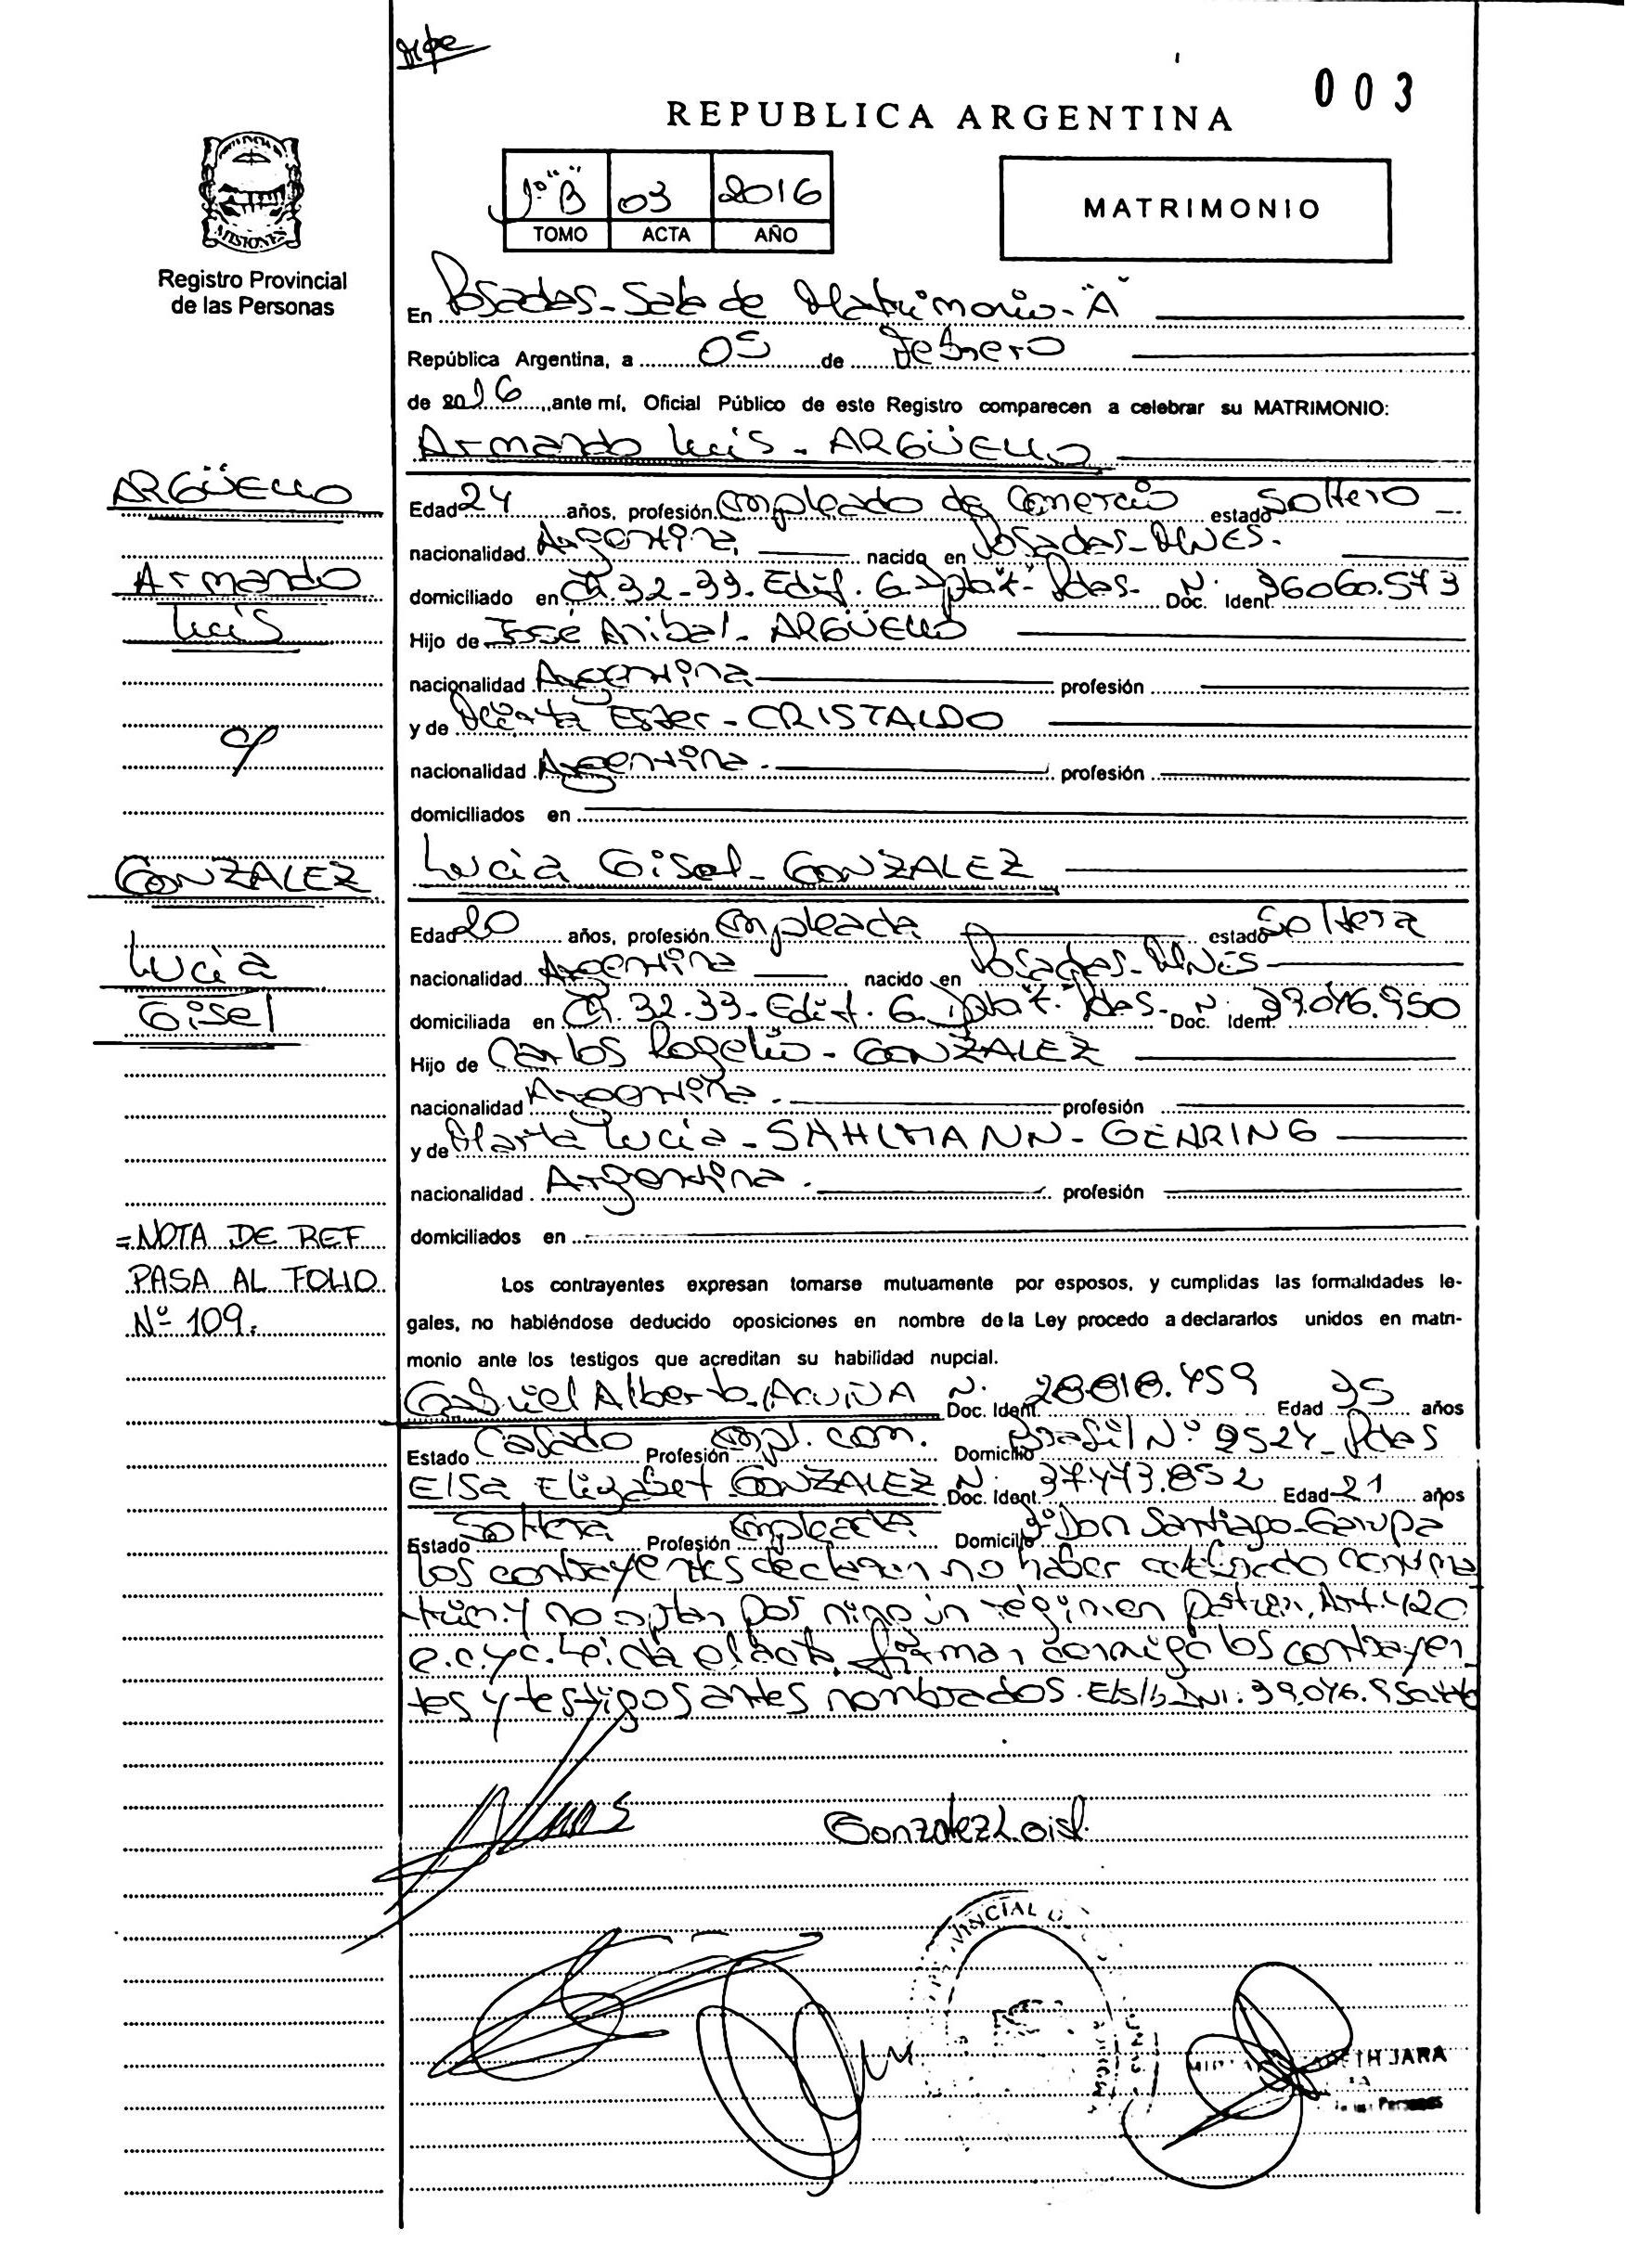 003
REPUBLICA ARGENTINA
1º "B" 03 2016
TOMO ACTA AÑO
MATRIMONIO
MISIONES
Registro Provincial
de las Personas
En Posadas - Sala de Matrimonio - "A"
República Argentina, a 05 de Febrero
de 2016, ante mí, Oficial Público de este Registro comparecen a celebrar su MATRIMONIO:
Armando Luis - ARGÜELLO
ARGÜELLO
Armando
Luis
Edad 24 años, profesión Empleado de Comercio estado Soltero
nacionalidad Argentina nacido en Posadas - Mnes.
domiciliado en Ch. 32-33 - Edif. 6 - Pdas - Doc. Ident. Nº 36060.573
Hijo de José Anibal - ARGÜELLO
nacionalidad Argentina profesión
y de Ester - CRISTALDO
nacionalidad Argentina profesión
domiciliados en
GONZALEZ
Lucia
Gisel
Lucia Gisel - GONZALEZ
Edad 20 años, profesión Empleada estado Soltera
nacionalidad Argentina nacido en Posadas - Mnes
domiciliada en Ch. 32-33 - Edif. 6 Pdas - Doc. Ident. Nº 39.046.950
Hijo de Carlos Rogelio - GONZALEZ
nacionalidad Argentina profesión
y de Marta Lucia - SAHLMANN - GEHRING
nacionalidad Argentina profesión
domiciliados en
= NOTA DE REF
PASA AL FOLIO
Nº 109.
Los contrayentes expresan tomarse mutuamente por esposos, y cumplidas las formalidades le-
gales, no habiéndose deducido oposiciones en nombre de la Ley procedo a declararlos unidos en matri-
monio ante los testigos que acreditan su habilidad nupcial.
Gabriel Alberto - ACUÑA Doc. Ident. Nº 28.818.459 Edad 35 años
Estado Casado Profesión Empl. com. Domicilio Brasil Nº 2524 - Pdas
Elsa Elizabet GONZALEZ Doc. Ident. Nº 37.473.852 Edad 21 años
Estado Soltera Profesión Empleada Domicilio Bº Don Santiago - Garupa
Los contrayentes declaran no haber celebrado conv. ma
trim. y no optan por ningún régimen patrim. Art. 420
c.c.yc. Leída el acta, firman conmigo los contrayen
tes y testigos antes nombrados. E/s/b DNI: 39.046.950
Gonzalez L. Gisel
JARA
Personas